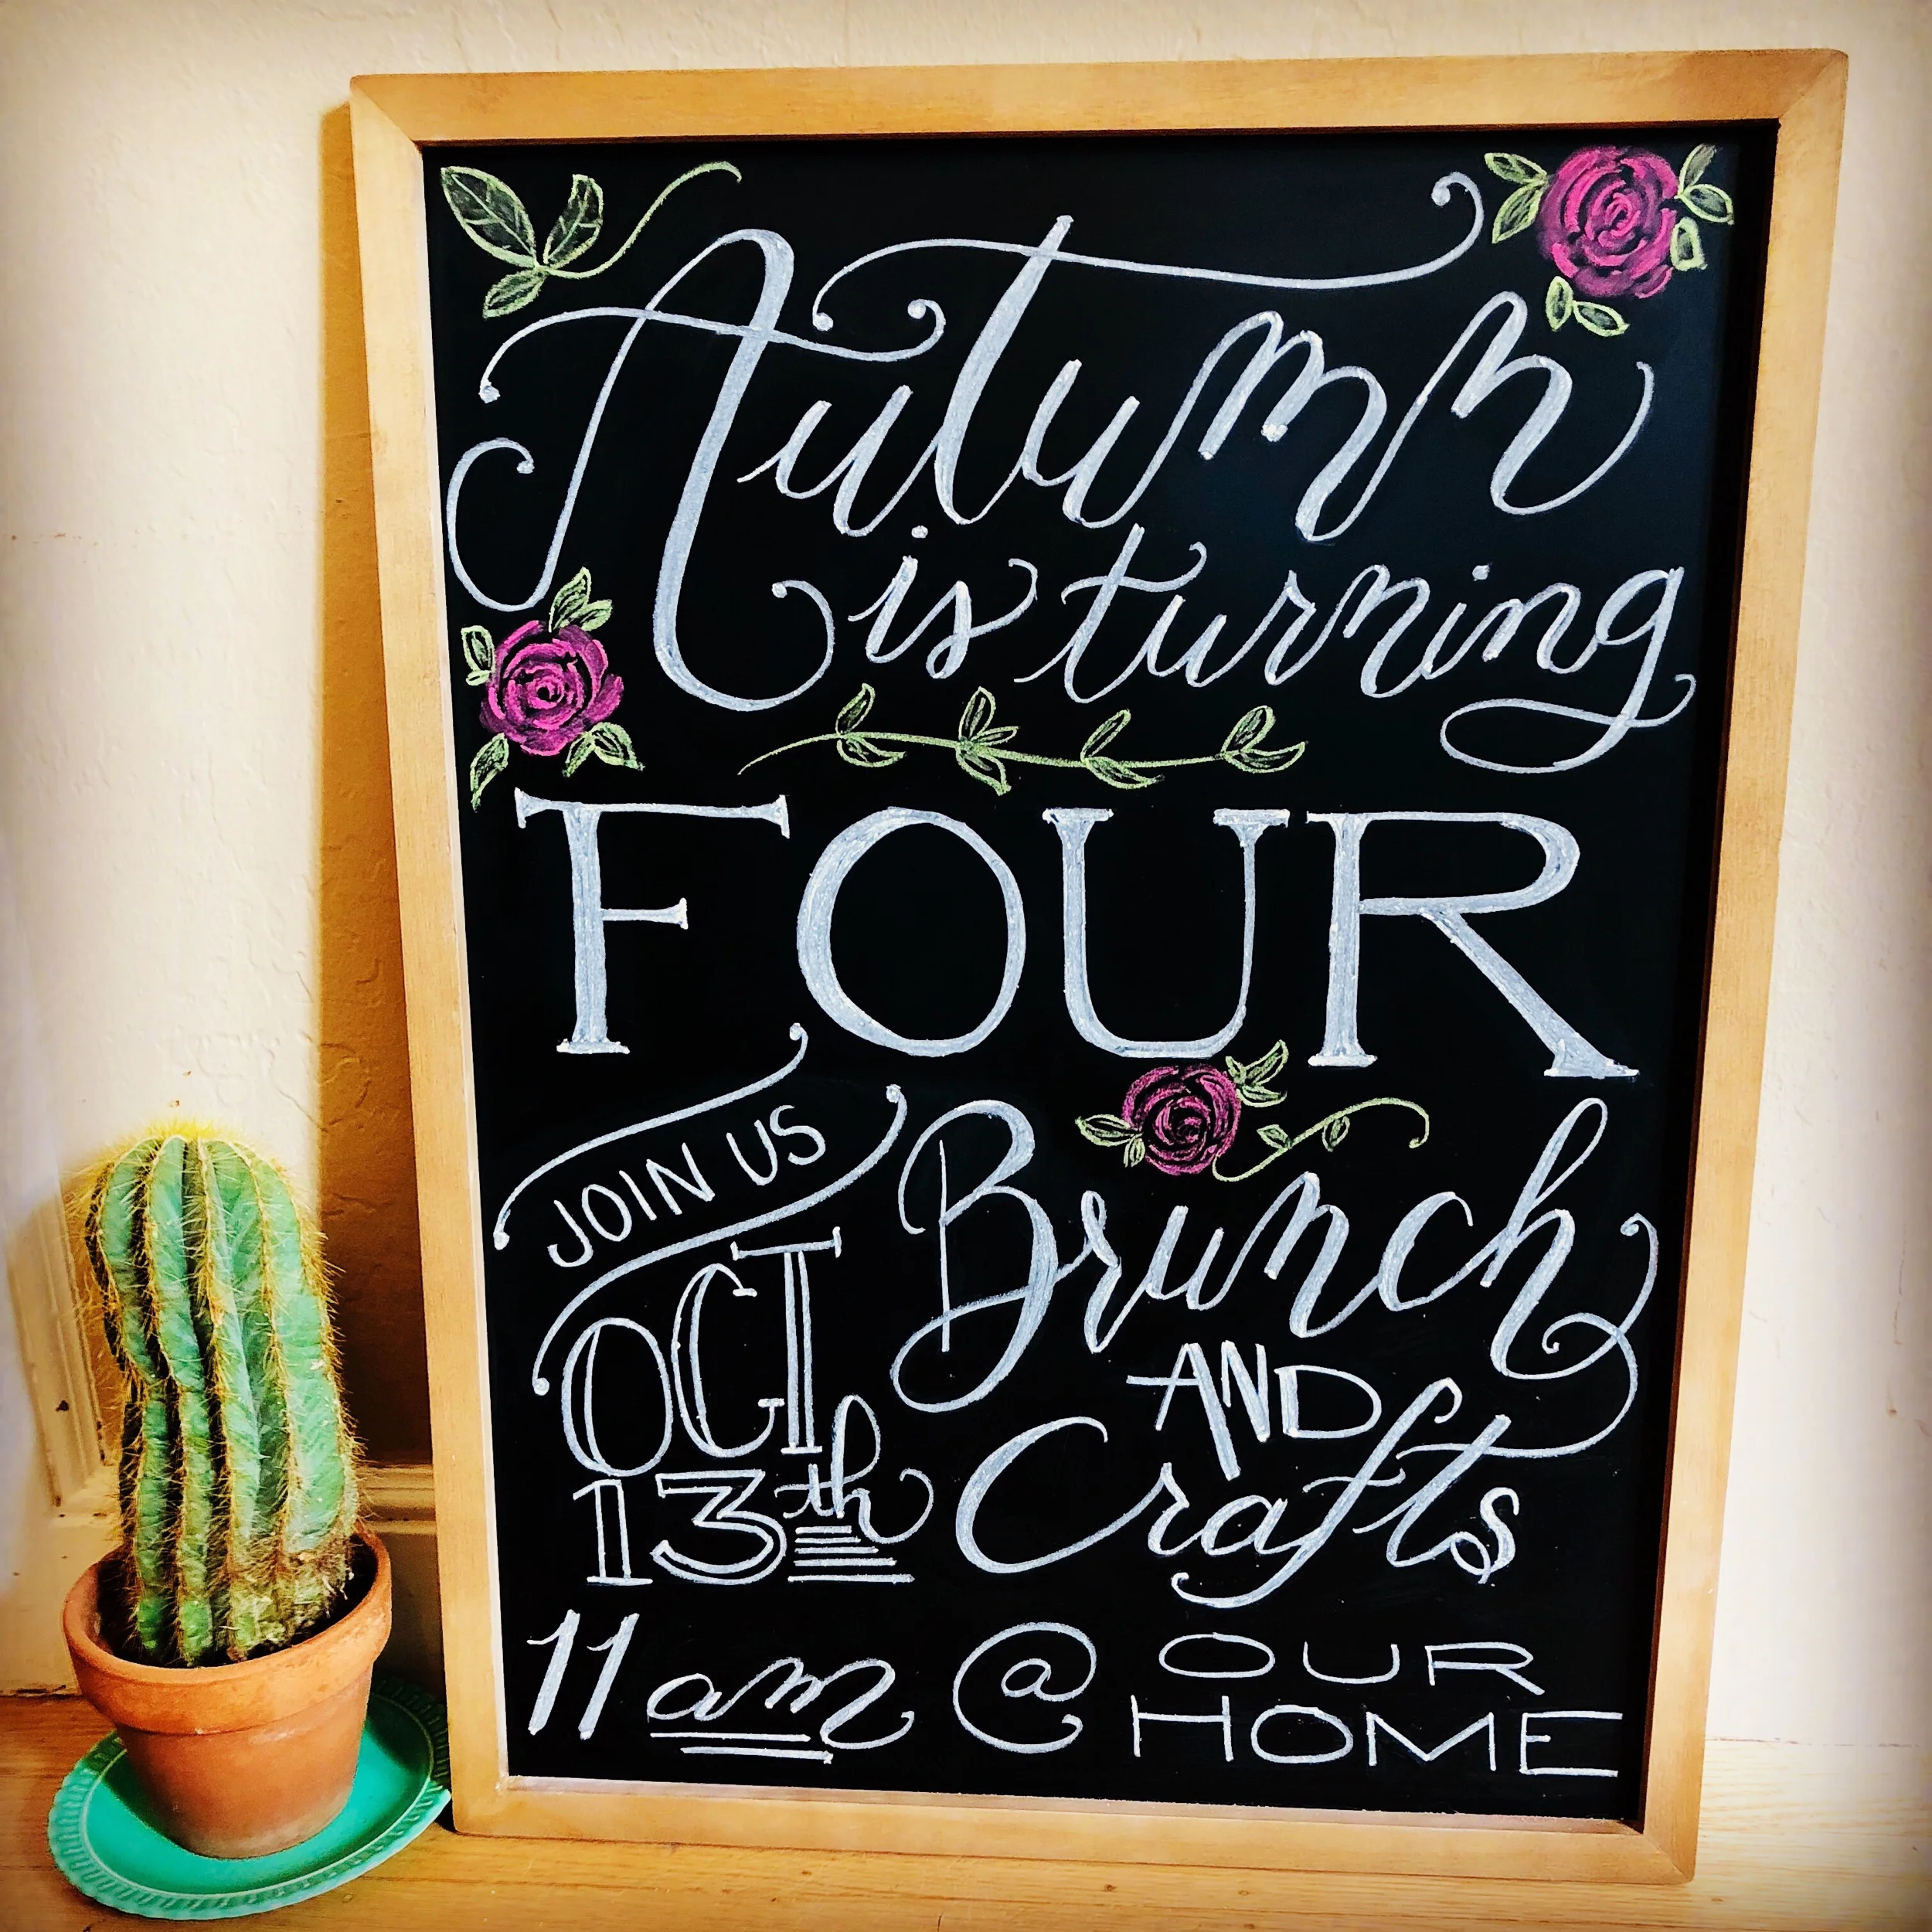 Autumn
is turning
FOUR
JOIN US
OCT
13th
Brunch
AND
Crafts
11 am @ OUR
HOME